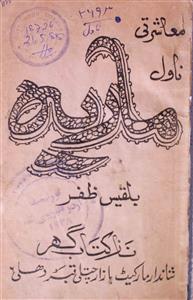 معاشرتی
ناول
ماریہ
بلقیس ظفر
نزاکت بک گھر
شاندار مارکیٹ بازار چتلی قبر دہلی ۶